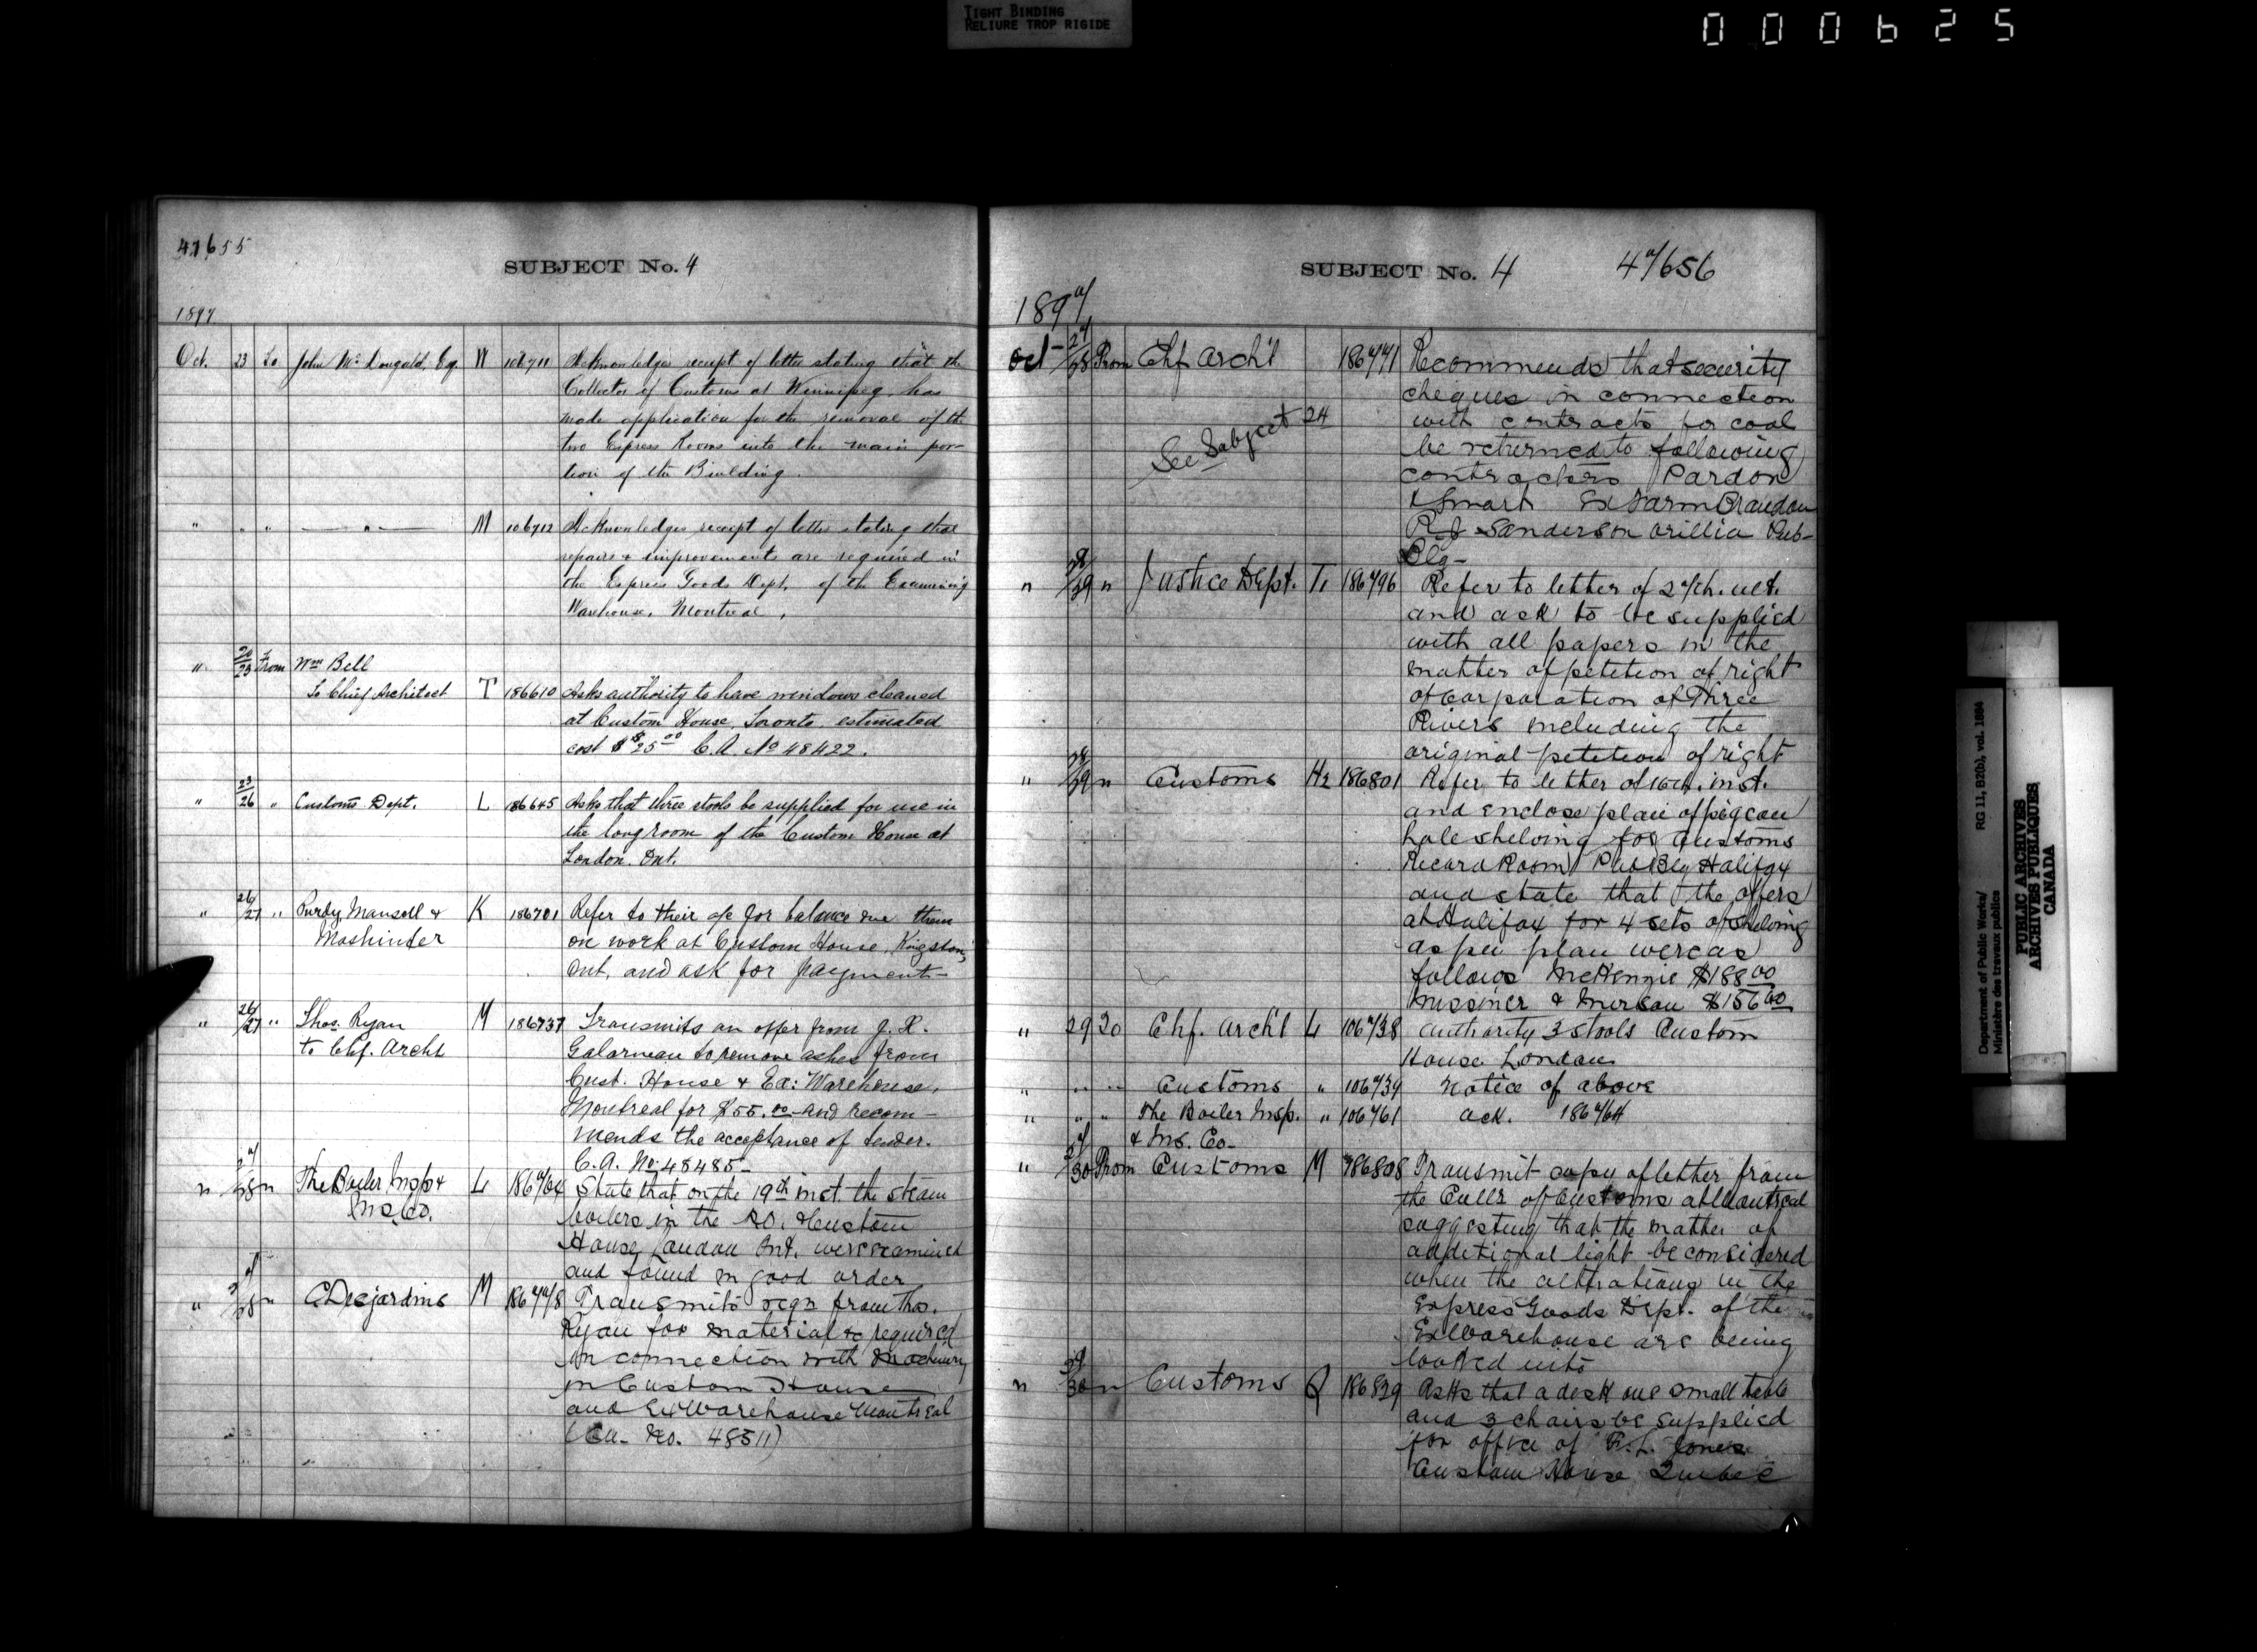 TIGHT BINDING
RELIURE TROP RIGIDE
000625
47655
SUBJECT No. 4
1897.
Oct. 23 To John McDougald, Esq. W 106711 Acknowledges receipt of letter stating that the
Collector of Customs at Winnipeg, has
made application for the removal of the
two Express Rooms into the main por-
tion of the Building.
" " " — " — M 106712 Acknowledges receipt of letter stating that
repairs & improvements are required in
the Express Goods Dept. of the Examining
Warehouse, Montreal,
" 20/23 From Wm Bell
To Chief Architect T 186610 Asks authority to have windows cleaned
at Custom House, Toronto, estimated
cost $25.00 C.A. No 48422.
" 23/26 " Customs Dept. L 186645 Asks that three stools be supplied for use in
the long room of the Custom House at
London. Ont.
" 26/27 " Purdy, Mansell & K 186701 Refer to their a/c for balance due them
Mashinter on work at Custom House, Kingston,
Ont, and ask for payment—
" 26/27 " Thos. Ryan M 186737 Transmits an offer from J. X.
to Chf. Archt Galarneau to remove ashes from
Cust. House & Ex: Warehouse,
Montreal for $55.00 and recom-
mends the acceptance of tender.
C.A. No. 48485—
" 27/28 " The Boiler Insp & L 186764 State that on the 19th inst. the steam
Ins. Co. boilers in the P.O. & Custom
House London Ont. were examined
and found in good order
" 27/28 " C Desjardins M 186778 Transmits reqn from Thos.
Ryan for material &c required
in connection with Machinery
in Custom House
and Ex Warehouse Montreal
(C.A. No. 48511)
SUBJECT No. 4 47656
1897
Oct 27/28 From Chf Archt 186771 Recommends that security
cheques in connection
See Subject 24 with contracts for coal
be returned to following
contractors Pardon
& Smart Ex Farm Brandon
R J Sanderson Orillia Pub-
Blg-
" 28/29 " Justice Dept. T. 186796 Refer to letter of 27th. ult.
and ask to be supplied
with all papers in the
matter of petition of right
of Corporation of Three
Rivers including the
original petition of right
" 28/29 " Customs Hx 186801 Refer to letter of 16th. inst.
and enclose plan of pigeon
hole shelving for Customs
Record Room Pub Blg Halifax
and state that the offers
at Halifax for 4 sets of shelving
as per plan were as
follows McKenzie $188.00
$156.00
" 29 To Chf. Archt L 106738 Authority 3 stools Custom
House London
" " " Customs " 106739 Notice of above
" " " The Boiler Insp. " 106761 Ack. 186764
& Ins. Co-
" 29/30 From Customs M 186808 Transmit copy of letter from
the Collr of Customs at Montreal
suggesting that the matter of
additional light be considered
when the alterations in the
Express Goods Dept. of the
Ex Warehouse are being
looked into
" 29/30 " Customs Q 186829 Asks that a desk one small table
and 3 chairs be supplied
for office of R.L. Jones
Custom House, Quebec
Department of Public Works/ RG 11, B2(b), vol. 1884
Ministère des travaux publics
PUBLIC ARCHIVES
ARCHIVES PUBLIQUES
CANADA